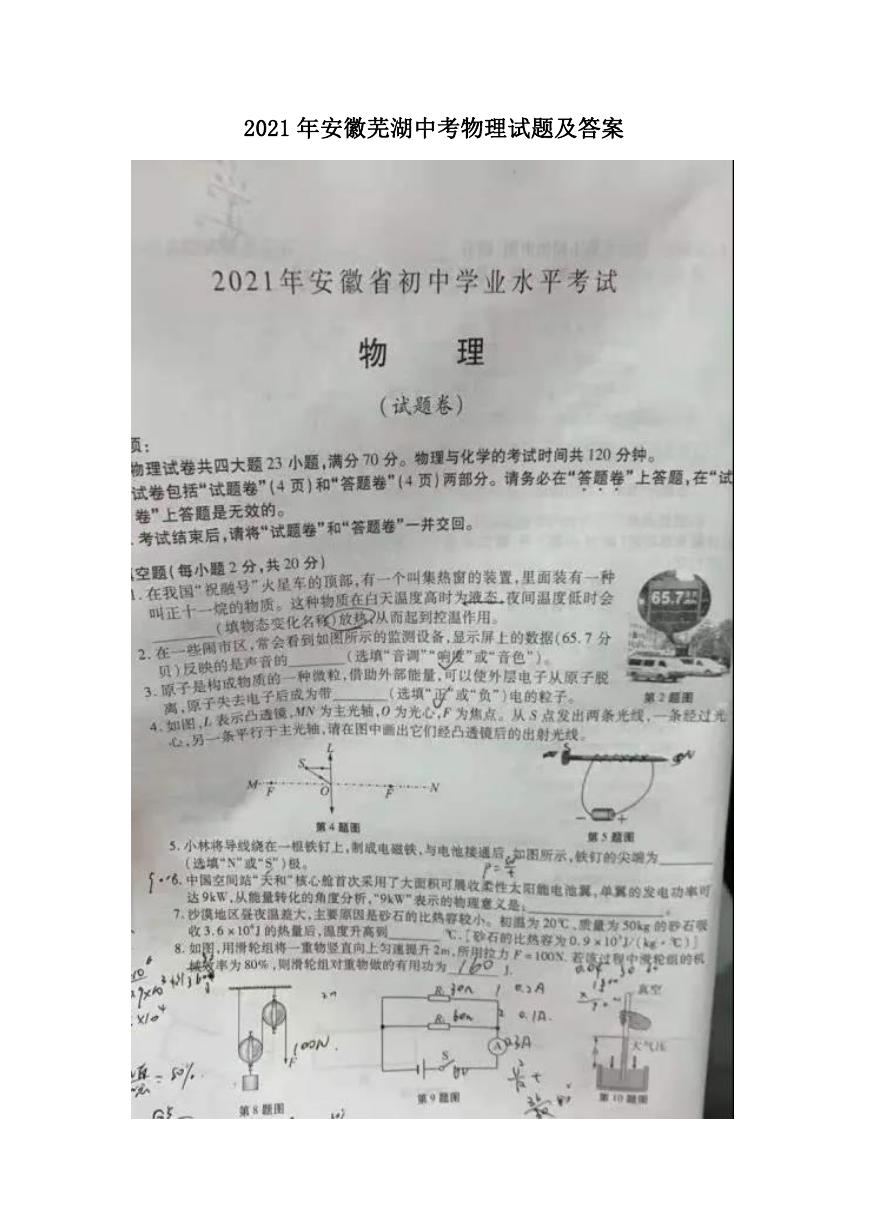 2021 年安徽芜湖中考物理试题及答案
2021年安徽省初中学业水平考试
物 理
(试题卷)
项:
物理试卷共四大题 23 小题,满分 70 分。物理与化学的考试时间共 120 分钟。
试卷包括“试题卷”(4 页)和“答题卷”(4 页)两部分。请务必在“答题卷”上答题,在“试
卷”上答题是无效的。
考试结束后,请将“试题卷”和“答题卷”一并交回。
空题(每小题 2 分,共 20 分)
1. 在我国“祝融号”火星车的顶部,有一个叫集热窗的装置,里面装有一种
叫正十一烷的物质。这种物质在白天温度高时为液态,夜间温度低时会
______(填物态变化名称)放热,从而起到控温作用。
2. 在一些闹市区,常会看到如图所示的监测设备,显示屏上的数据(65.7 分
贝)反映的是声音的______(选填“音调”“响度”或“音色”)。
3. 原子是构成物质的一种微粒,借助外部能量,可以使外层电子从原子脱
离,原子失去电子后成为带______(选填“正”或“负”)电的粒子。
65.7
第 2 题图
4. 如图,L 表示凸透镜,MN 为主光轴,O 为光心,F 为焦点。从 S 点发出两条光线,一条经过光
心,另一条平行于主光轴,请在图中画出它们经凸透镜后的出射光线。
L
S
M F O F N
第 4 题图
S N
− +
第 5 题图
5. 小林将导线绕在一根铁钉上,制成电磁铁,与电池接通后,如图所示,铁钉的尖端为______
(选填“N”或“S”)极。
6. 中国空间站“天和”核心舱首次采用了大面积可展收柔性太阳能电池翼,单翼的发电功率可
达 9kW,从能量转化的角度分析,“9kW”表示的物理意义是:______。
7. 沙漠地区昼夜温差大,主要原因是砂石的比热容较小。初温为 20℃,质量为 50kg 的砂石吸
收 3.6×10⁵J 的热量后,温度升高到______℃.[砂石的比热容为 0.9×10³J/(kg·℃)]
8. 如图,用滑轮组将一重物竖直向上匀速提升 2m,所用拉力 F=100N. 若该过程中滑轮组的机
械效率为 80%,则滑轮组对重物做的有用功为 160 J.
F
100N.
= 80%
第 8 题图
R₁ 30Ω 0.2A
R₂ 60Ω 0.1A.
A 0.3A
S
6V
第 9 题图
真空
大气压
h
第 10 题图